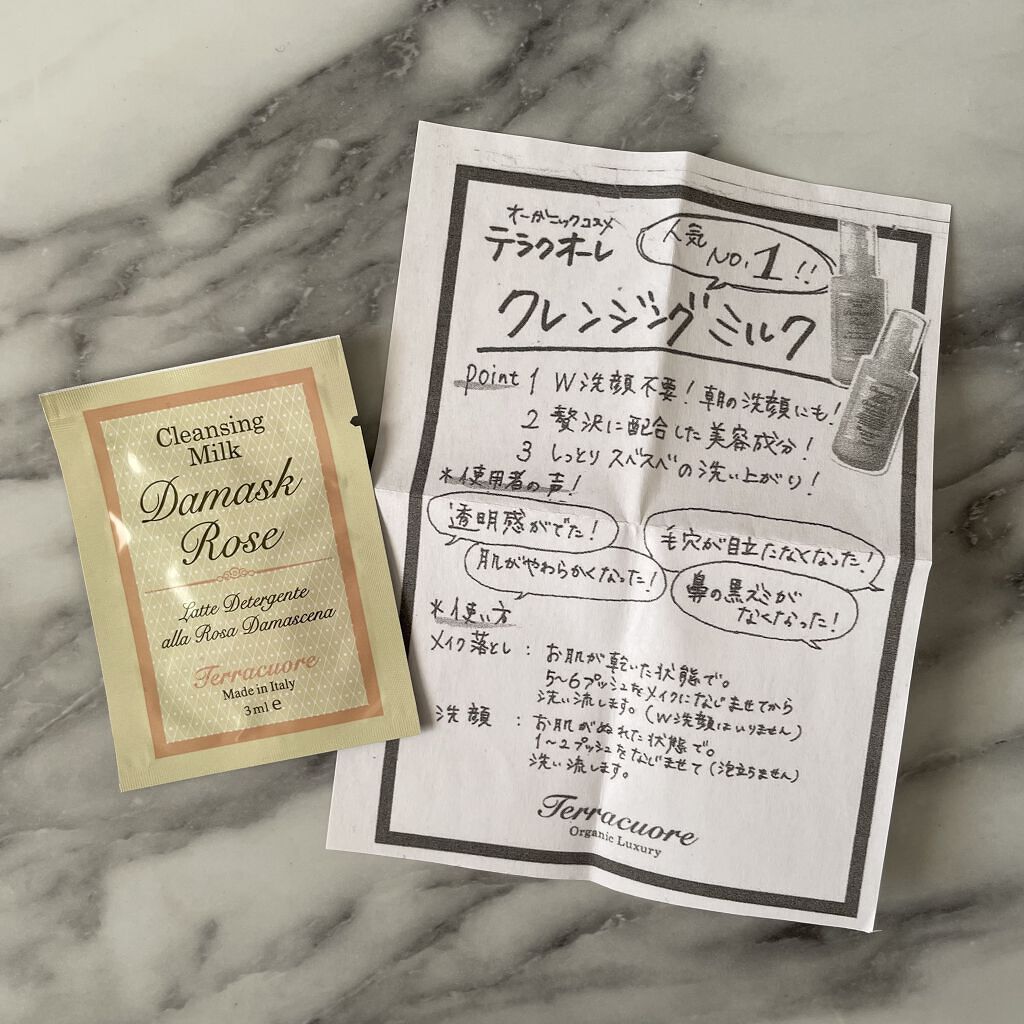 Cleansing
Milk
Damask
Rose
Latte Detergente
alla Rosa Damascena
Terracuore
Made in Italy
3ml e
オーガニックコスメ
テラクオーレ
人気
NO.1!!
クレンジングミルク
point 1 W洗顔不要!朝の洗顔にも!
2 贅沢に配合した美容成分!
3 しっとりスベスベの洗い上がり!
*使用者の声!
透明感がでた!
毛穴が目立たなくなった!
肌がやわらかくなった!
鼻の黒ズミが
なくなった!
*使い方
メイク落とし: お肌が乾いた状態で。
5~6プッシュをメイクになじませてから
洗い流します。(W洗顔はいりません)
洗顔 : お肌がぬれた状態で。
1~2プッシュをなじませて(泡立ちません)
洗い流します。
Terracuore
Organic Luxury